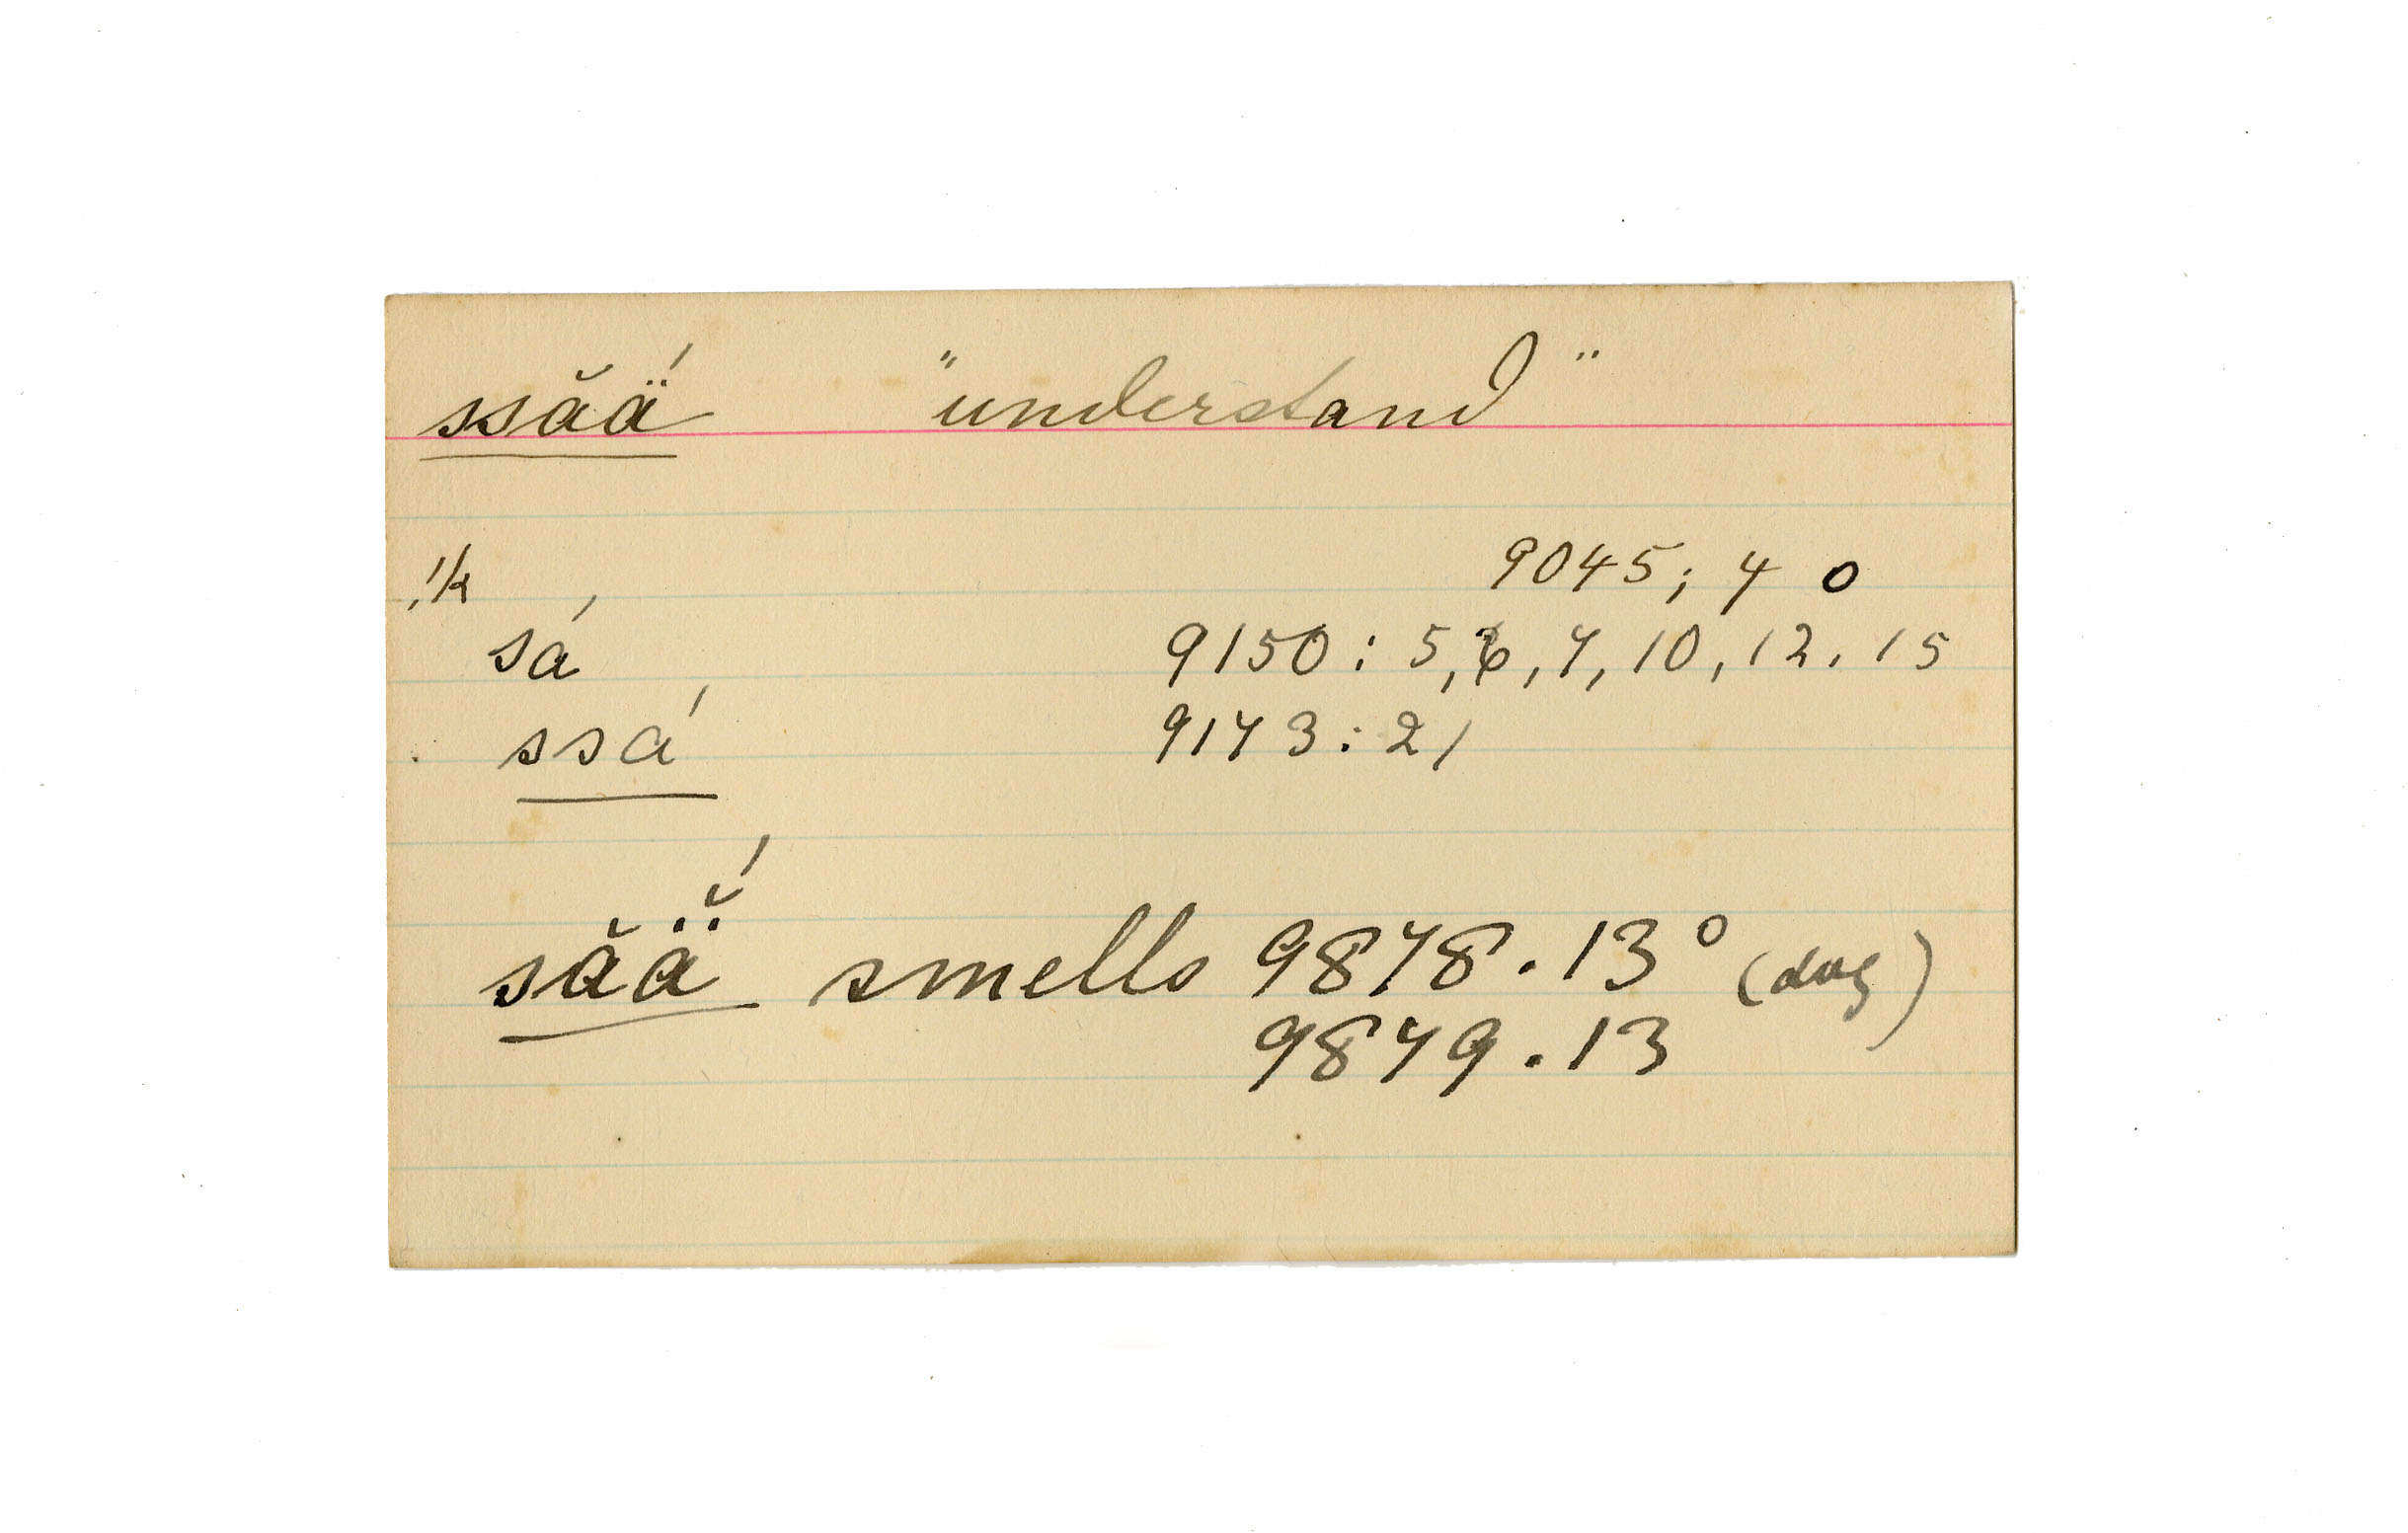 ssăä́ "understand"
!k 9045; 7 0
sá 9150: 5, 6, 7, 10, 12, 15
ssá 9173: 21
săä̆́ smells 9878.13° (dog)
9879.13